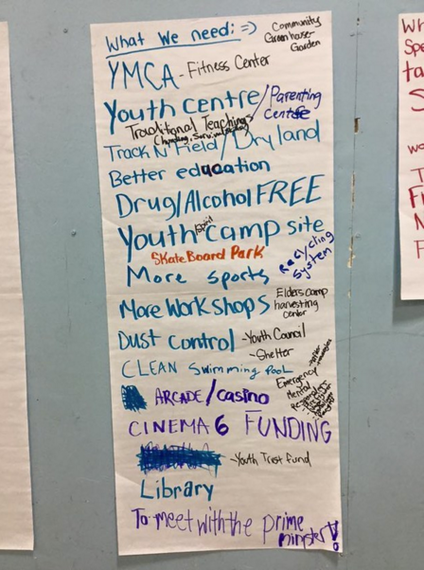 What We need: =>
Community
Greenhouse
Garden
YMCA - Fitness Center
Youth centre / Parenting
Centre
Traditional Teachings
Track N Field / Dry land
Better education
Drug/Alcohol FREE
Youth Spirit camp site
Skate Board Park
Recycling
System
More sports
More Workshops
Elders camp
harvesting
center
Dust control - Youth Council
- Shelter
CLEAN Swimming Pool
Emergency
Mental
ARCADE / Casino
CINEMA 6 FUNDING
- Youth Trust fund
Library
To meet with the prime
minister!
Wh
Spe
ta
S
wo
T
F
N
F